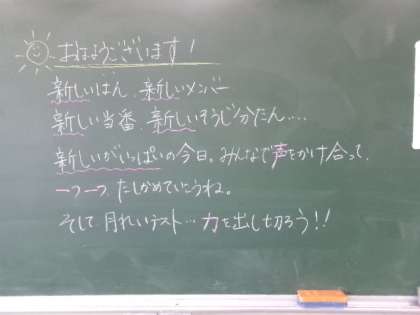 おはようございます!
新しいはん、新しいメンバー
新しい当番、新しいそうじ分たん……
新しいがいっぱいの今日。みんなで声をかけ合って、
一つ一つ、たしかめていこうね。
そして月れいテスト…力を出し切ろう!!